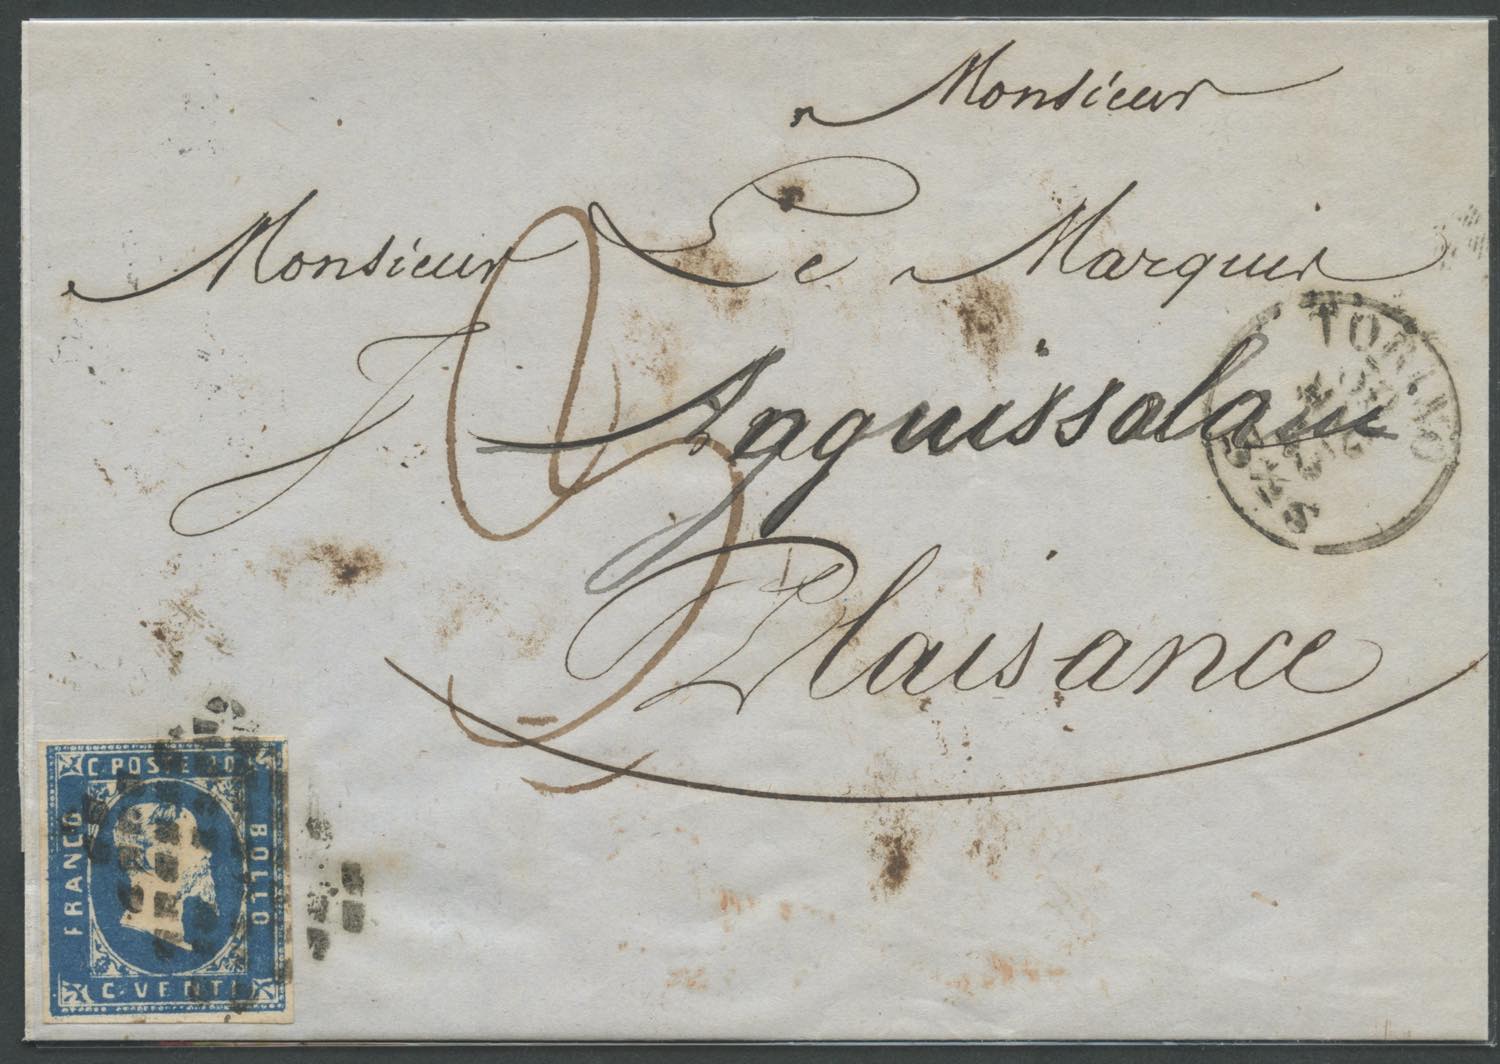 Monsieur
Monsieur Le Marquis
J Anguissolam
Plaisance
TORINO
C. POSTE 20
FRANCO
BOLLO
C. VENTI